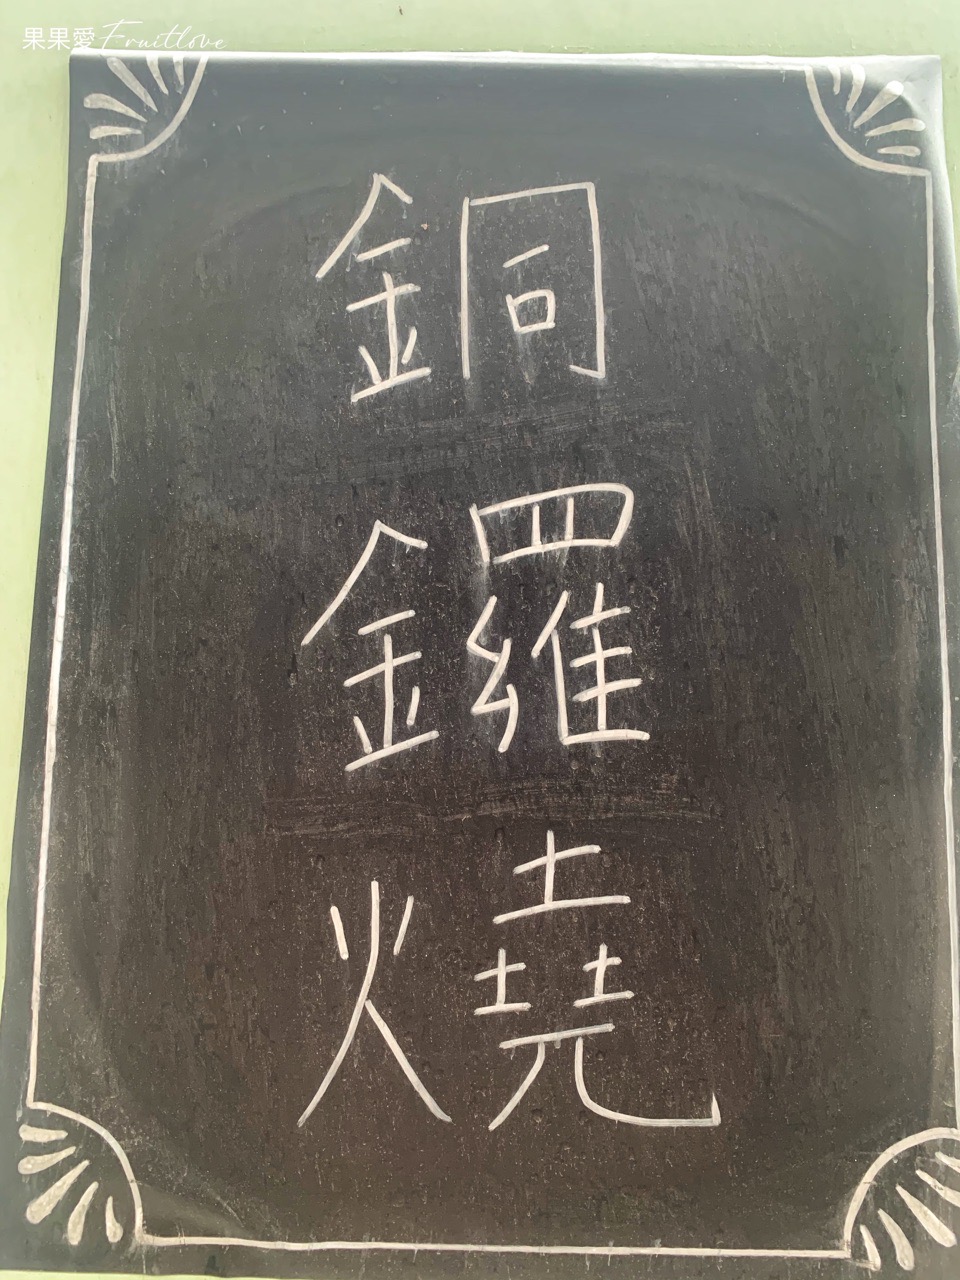 果果愛Fruitlove
銅
鑼
燒